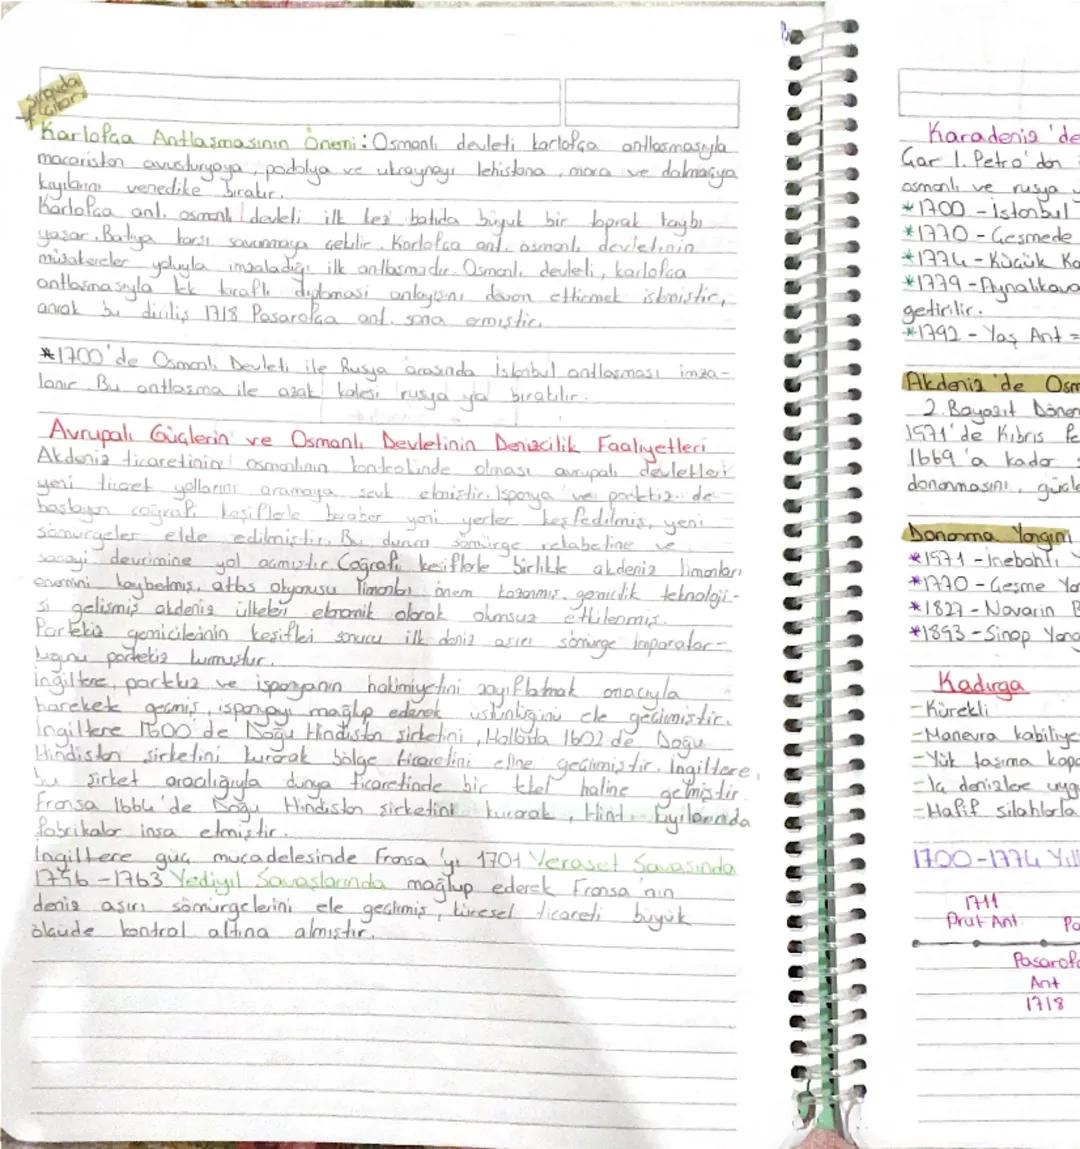 Sınavda
çıkar
Karlofça Antlaşmasının Önemi: Osmanlı devleti karlofça antlaşmasıyla
macaristan avusturyaya, podolya ve ukraynayı lehistana, mora ve dalmaçya
kıyılarını venedike bırakır.
Karlofça ant. osmanlı devleti ilk kez batıda büyük bir toprak kaybı
yaşar. Batıya karşı savunmaya çekilir. Karlofça ant. osmanlı devletinin
müzakereler yoluyla imzaladığı ilk antlaşmadır. Osmanlı devleti, karlofça
antlaşmasıyla tek taraflı diplomasi anlayışını devam ettirmek istemiştir,
ancak bu diriliş 1718 Pasarofça ant. sona ermiştir.
*1700'de Osmanlı Devleti ile Rusya arasında İstanbul antlaşması imza-
lanır. Bu antlaşma ile azak kalesi rusya ya bırakılır.
Avrupalı Güçlerin ve Osmanlı Devletinin Denizcilik Faaliyetleri
Akdeniz ticaretinin osmanlının kontrolünde olması avrupalı devletleri
yeni ticaret yollarını aramaya sevk etmiştir. İspanya ve portekiz de
başlayan coğrafi keşiflerle beraber yeni yerler keşfedilmiş, yeni
sömürgeler elde edilmiştir. Bu durum sömürge rekabetine ve
sanayi devrimine yol açmıştır. Coğrafi keşiflerle birlikte akdeniz limanları
önemini kaybetmiş, atlas okyonusu limanları önem kazanmış. gemicilik teknoloji-
si gelişmiş akdeniz ülkeleri ekonomik olarak olumsuz etkilenmiş.
Portekiz gemicilerinin keşifleri sonucu ilk deniz aşırı sömürge imparator-
luğunu portekiz kurmuştur.
İngiltere, portekiz ve ispanyanın hakimiyetini zayıflatmak amacıyla
harekete geçmiş, ispanyayı mağlup ederek üstünlüğünü ele geçirmiştir.
İngiltere 1600'de Doğu Hindistan şirketini, Hollanda 1602'de Doğu
Hindistan şirketini kurarak bölge ticaretini eline geçirmiştir. İngiltere,
bu şirket aracılığıyla dünya ticaretinde bir tekel haline gelmiştir.
Fransa 1664'de Doğu Hindistan şirketini kurarak, Hint kıyılarında
fabrikalar inşa etmiştir.
İngiltere güç mücadelesinde Fransa'yı 1701 Veraset Savaşında
1756-1763 Yediyıl Savaşlarında mağlup ederek Fransa'nın
deniz aşırı sömürgelerini ele geçirmiş, küresel ticareti büyük
ölçüde kontrol altına almıştır.
Karadeniz'de
Çar 1. Petro'dan
osmanlı ve rusya
*1700 - İstanbul
*1770 - Çeşmede
*1774 - Küçük Ka
*1779 - Aynalıkava
getirilir.
*1792 - Yaş Ant =
Akdeniz'de Osm
2. Bayazıt Dönem
1571'de Kıbrıs Fe
1669'a kadar
donanmasını, güçle
Donanma Yangın
*1571 - İnebahtı Y
*1770 - Çeşme Ya
*1827 - Navarin B
*1853 - Sinop Yang
Kadırga
- Kürekli
- Manevra kabiliye
- Yük taşıma kapa
- İç denizlere uyg
- Hafif silahlarla
1700-1774 Yıll
1711
Prut Ant.
Pa
Pasarofç
Ant
1718